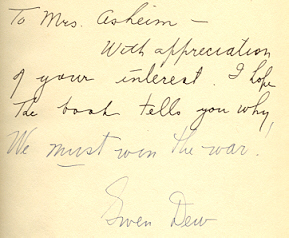 To Mrs. Asheim –
With appreciation
of your interest. I hope
the book tells you why
We must win the war.
Gwen Dew